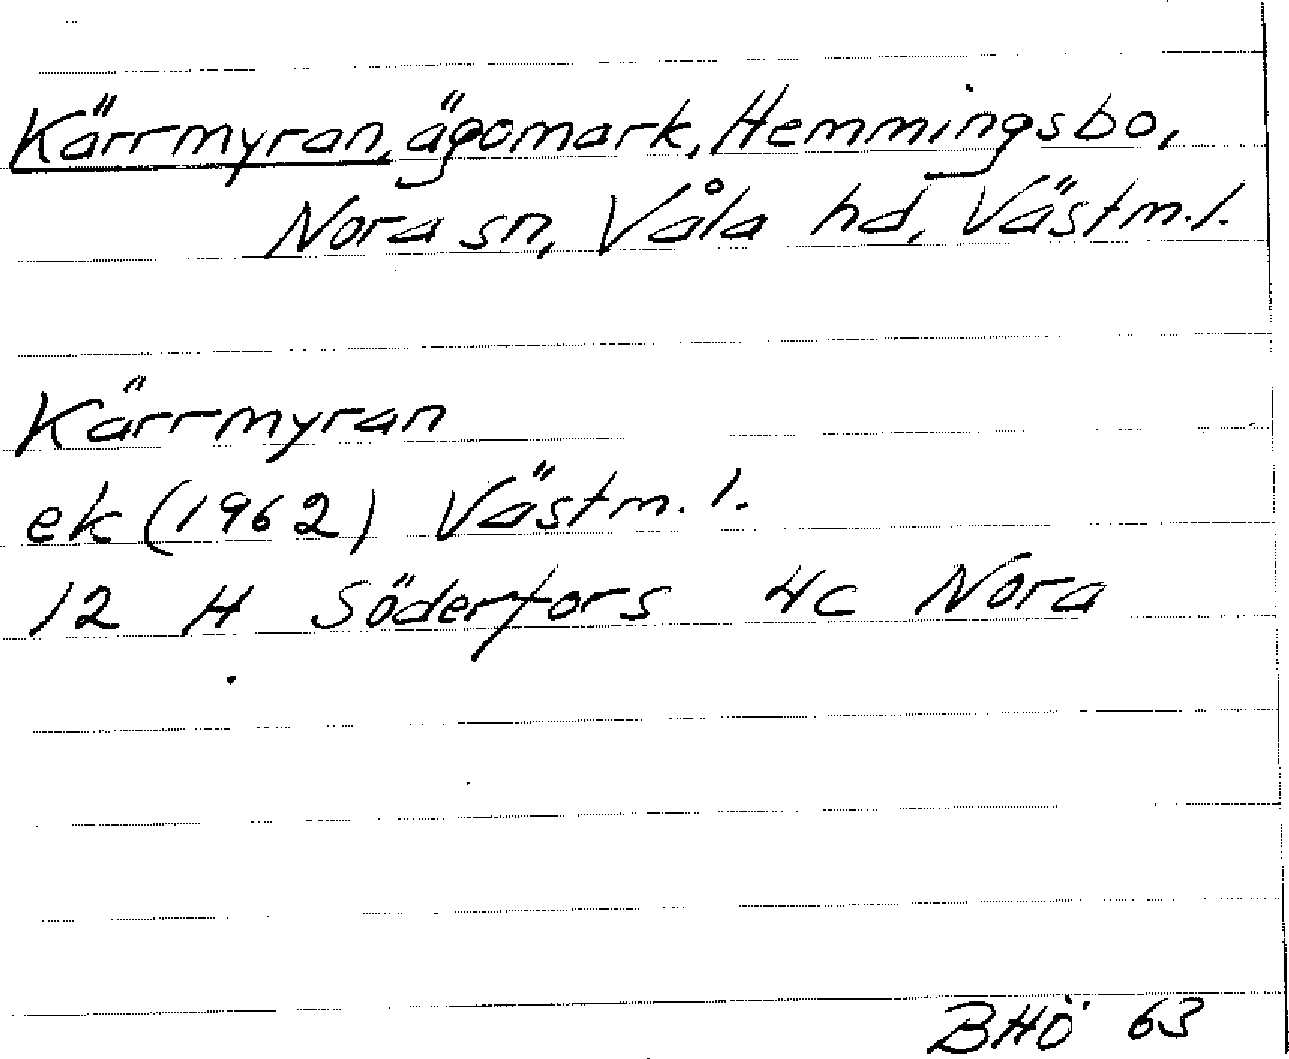 Kärrmyran, ägomark, Hemmingsbo,
Nora sn, Våla hd, Västm. l.
Kärrmyran
ek (1962) Västm. l.
12 H Söderfors 4c Nora
BHÖ 63